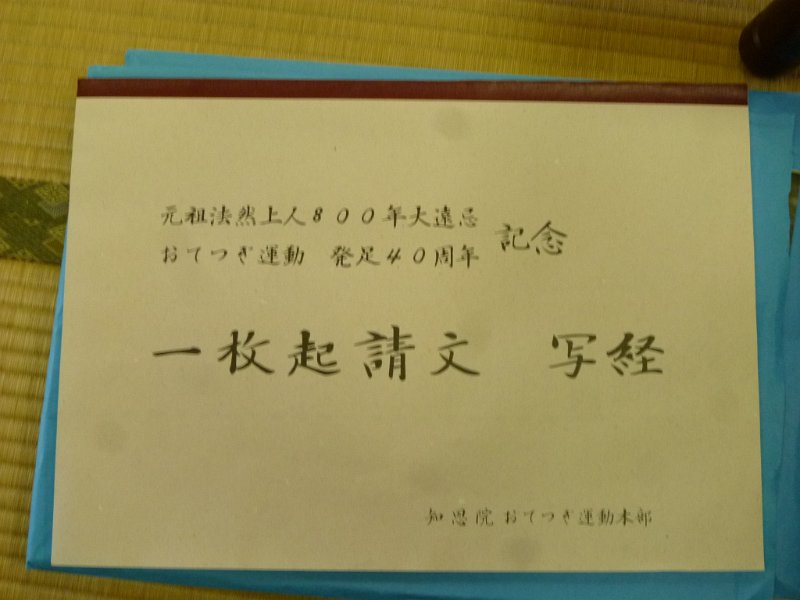 元祖法然上人８００年大遠忌
おてつぎ運動　発足４０周年
記念
一枚起請文　写経
知恩院 おてつぎ運動本部